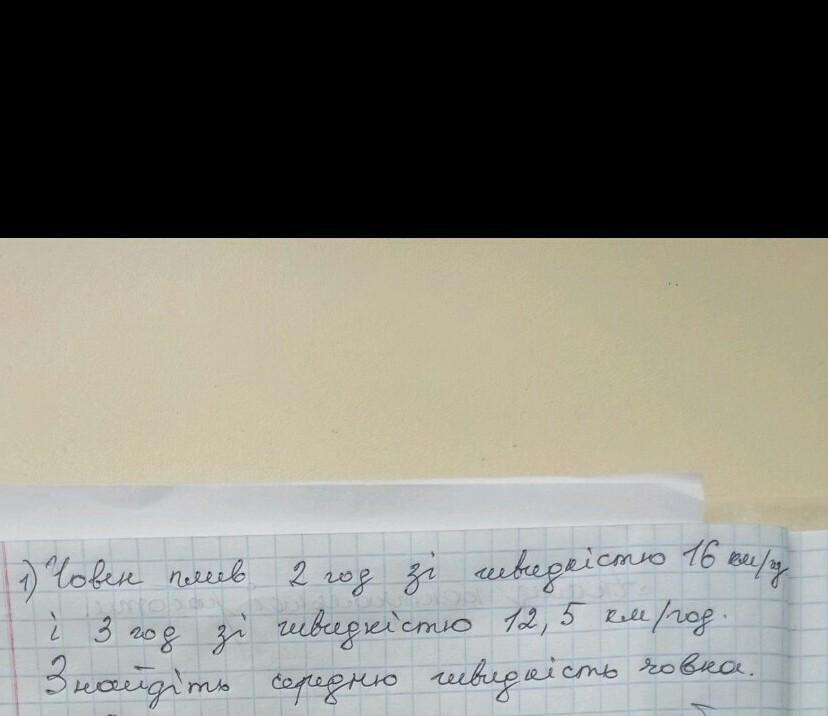 1) Човен плив 2 год зі швидкістю 16 км/г
і 3 год зі швидкістю 12,5 км/год.
Знайдіть середню швидкість човна.